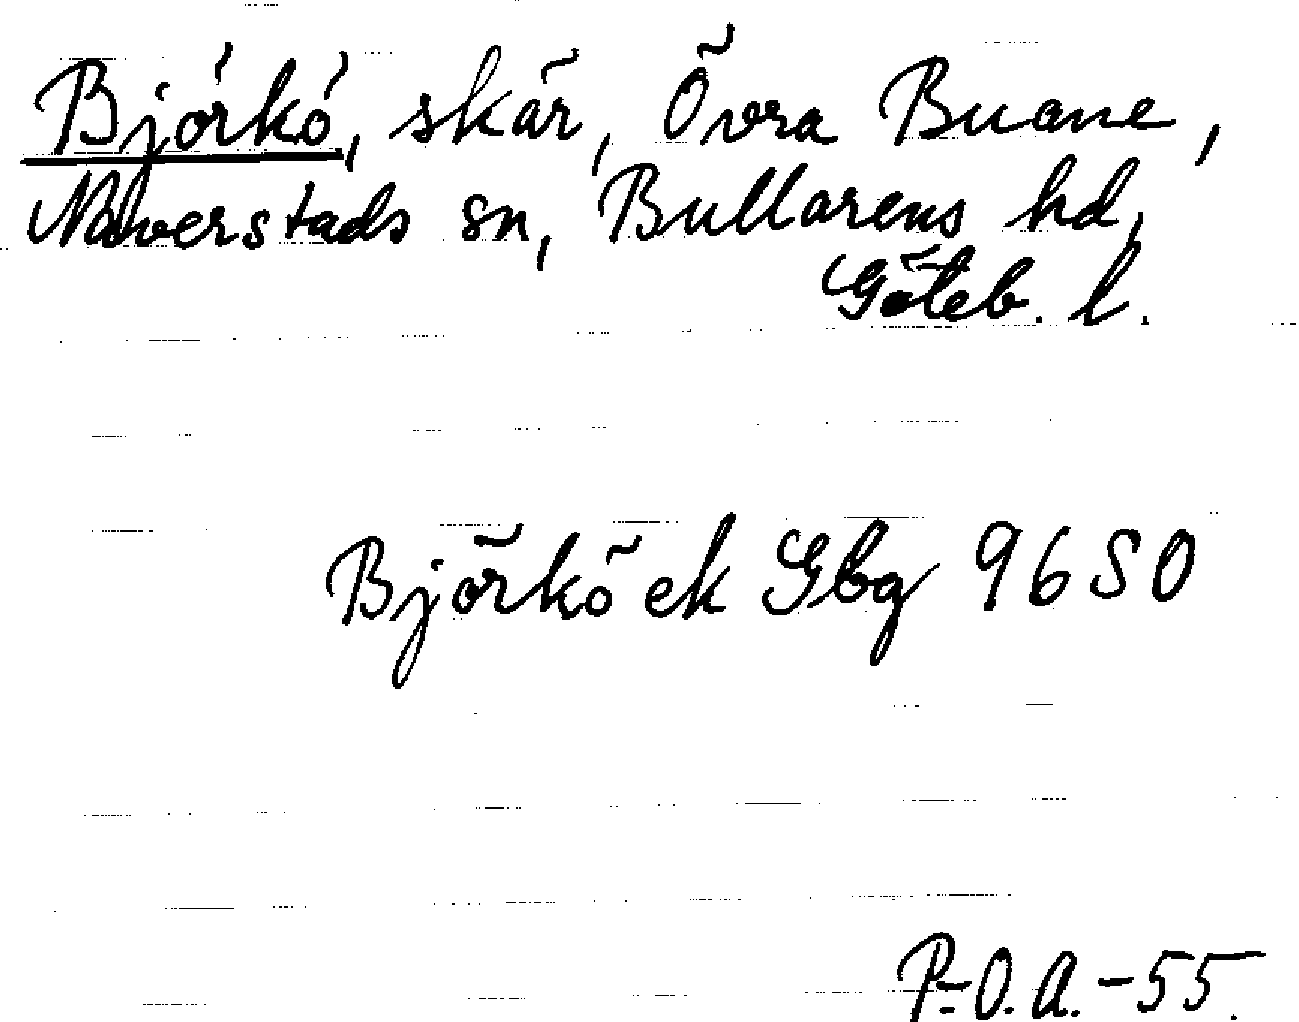 Björkö, skär, Övra Buane,
Naverstads sn, Bullarens hd,
Göteb. l.
Björkö ek Gbg 9650
P-O.A.-55.